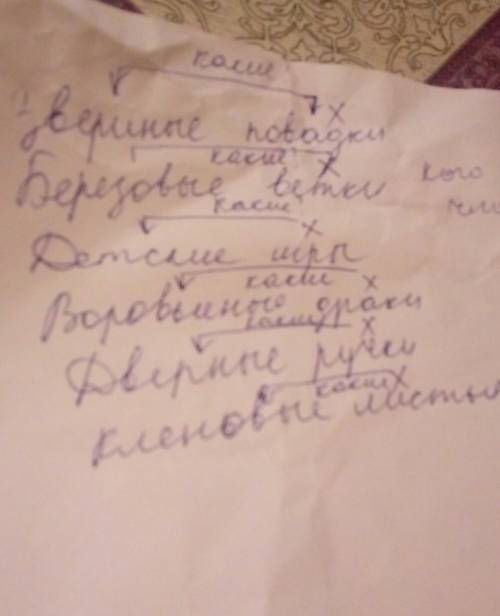 какие
х
Звериные повадки
какие
х
Березовые ветки кого
какие
х
Детские игры
какие
х
Воровьиные драки
какие
х
Дверные ручки
какие
х
кленовые листья